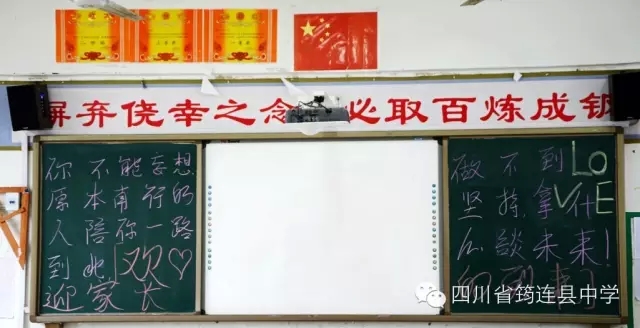 屏弃侥幸之念 必取百炼成钢
你不能妄想
原本南行的
人陪你一路
到北
欢♡
迎家长
做不到
坚持拿什
么談未来!
LO
VE
到
四川省筠连县中学